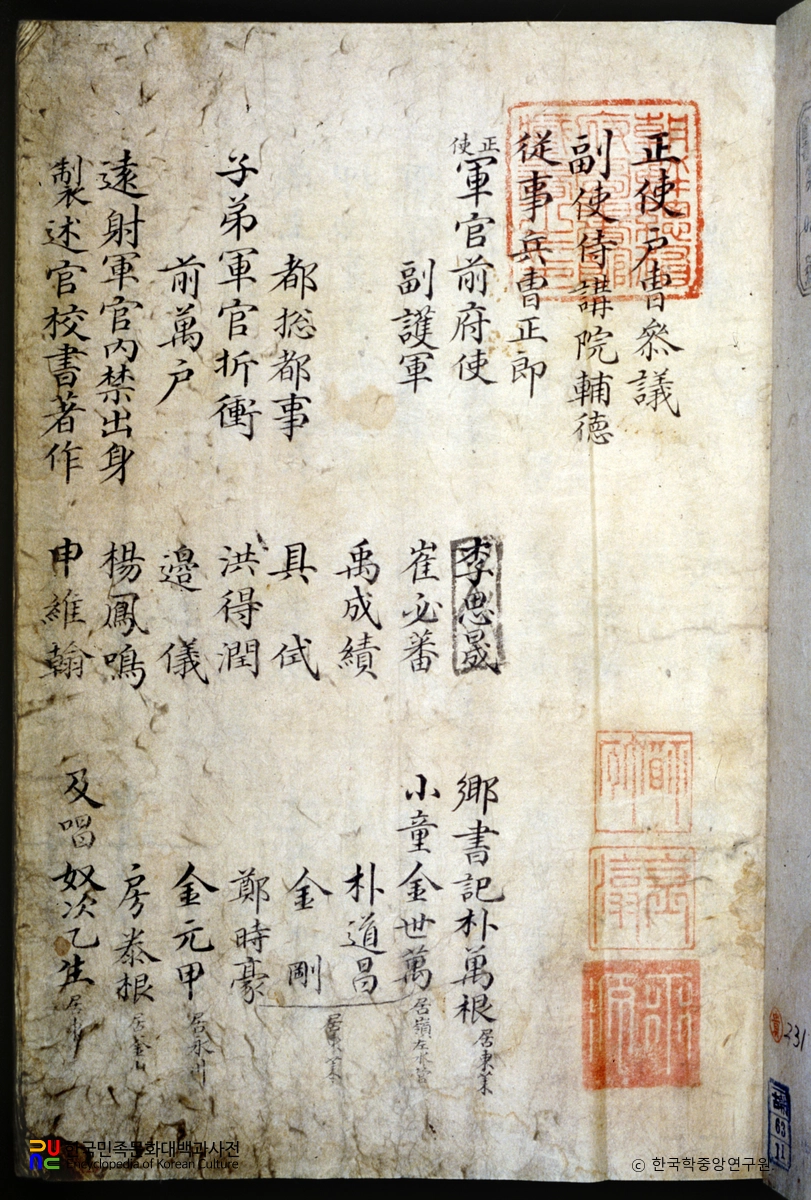 正使戶曹參議
副使侍講院輔德
従事兵曹正郎
正使軍官前府使 李思晟 鄉書記朴萬根 居東萊
副護軍 崔必蕃 小童金世萬 居嶺左水營
禹成績 朴道昌
都摠都事 具侙 金剛 居東萊
子弟軍官折衝 洪得潤 鄭時豪
前萬戶 邉儀 金元甲 居永川
遠射軍官內禁出身 楊鳳鳴 房泰根 居釜山
製述官校書著作 申維翰 及唱奴次乙生
한국민족문화대백과사전
Encyclopedia of Korean Culture
© 한국학중앙연구원
231
63
11